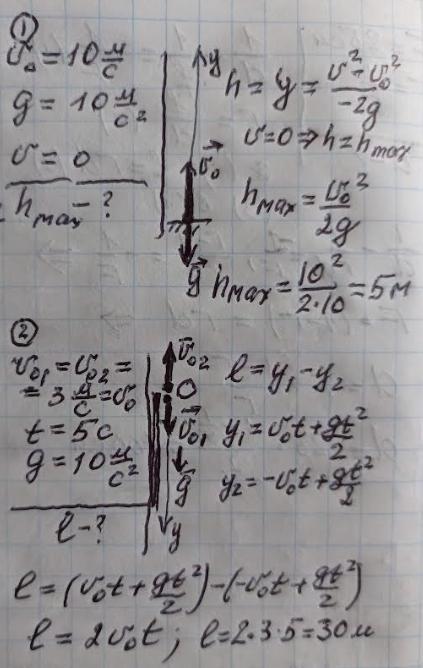 ①
v₀ = 10 м/с
g = 10 м/с²
v = 0
h_max - ?
y
v⃗₀
g⃗
h = y = (v² - v₀²)/(-2g)
v = 0 ⇒ h = h_max
h_max = v₀²/(2g)
h_max = 10²/(2·10) = 5 м
②
v₀₁ = v₀₂ =
= 3 м/с = v₀
t = 5 с
g = 10 м/с²
l - ?
v⃗₀₂
O
v⃗₀₁
g⃗
y
l = y₁ - y₂
y₁ = v₀t + gt²/2
y₂ = -v₀t + gt²/2
l = (v₀t + gt²/2) - (-v₀t + gt²/2)
l = 2v₀t; l = 2·3·5 = 30 м